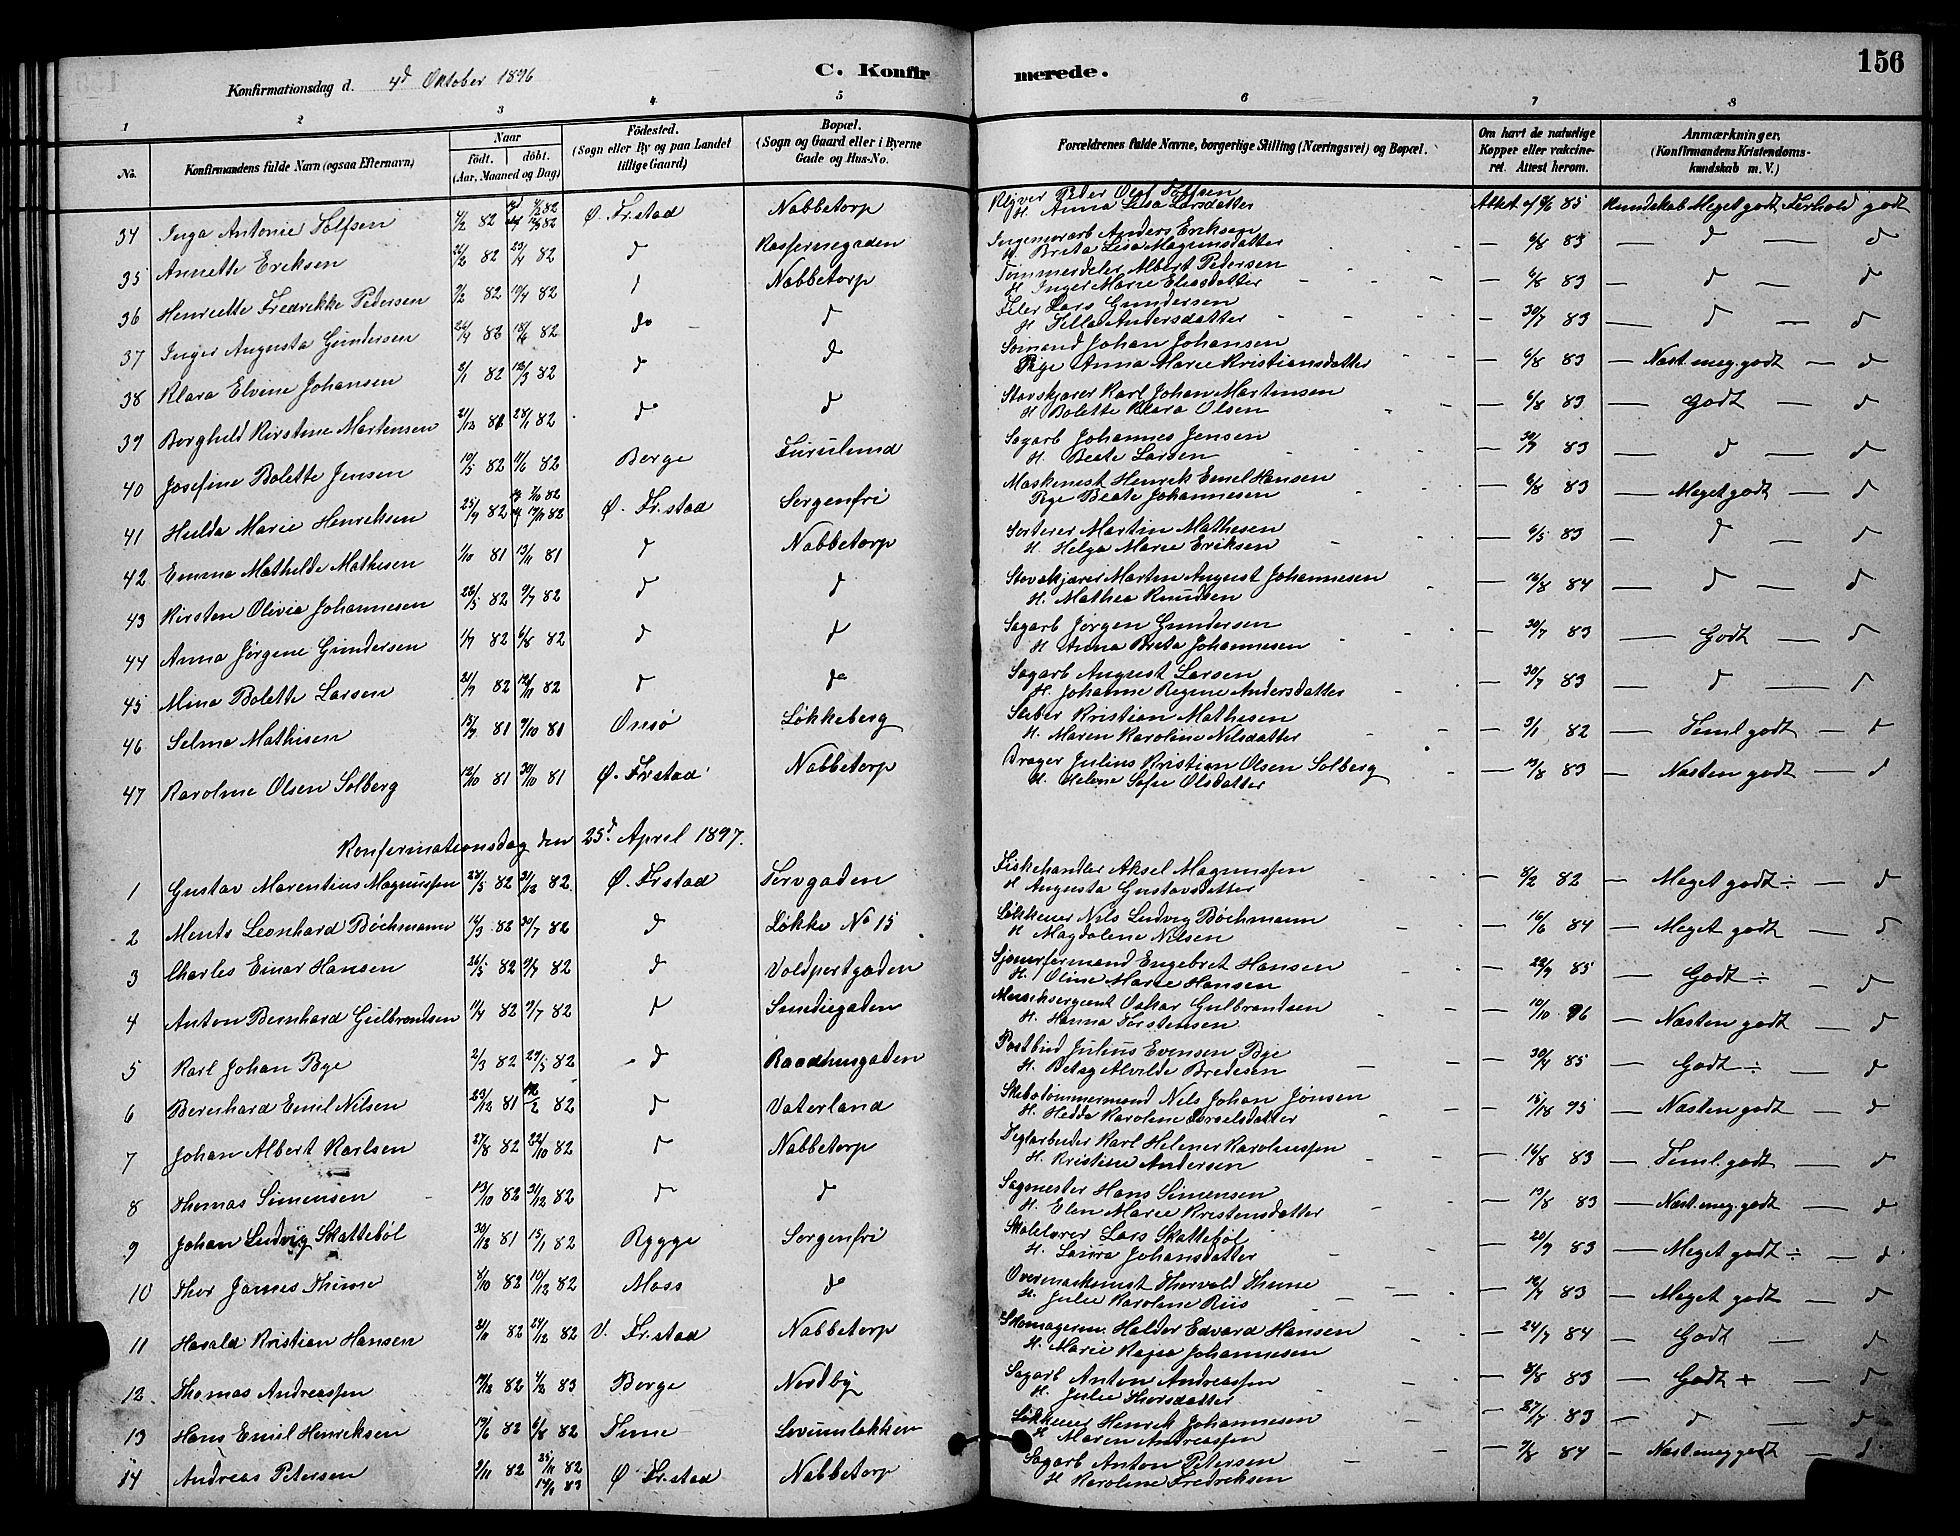 Konfirmationsdag d. 4d Oktober 1896
C. Konfirmerede.
156
1 2 3 4 5 6 7 8
No. Konfirmandens fulde Navn (ogsaa Efternavn) Naar Født. døbt. (Aar, Maaned og Dag) Fødested. (Sogn eller By og paa Landet tillige Gaard) Bopæl. (Sogn og Gaard eller i Byerne Gade og Hus-No. Forældrenes fulde Navne, borgerlige Stilling (Næringsvei) og Bopæl. Om havt de naturlige Kopper eller vakcineret. Attest herom. Anmærkninger. (Konfirmandens Kristendomskundskab m. V.)
34 Inga Antonie Tolfsen 4/2 82 Ø. Fr.stad Nabbetorp Peder Olaf Tolfsen H. Anna Lisa Larsdatter Attest 85 Kundskab Meget godt Forhold godt
35 Annette Eriksen 26/2 82 23/4 82 d Anders Eriksen H. Brita Lisa Magnusdatter — 6/8 83 — d — d
36 Henriette Fredrikke Petersen 9/2 82 10/4 82 d Nabbetorp Tømmerdeler Albert Petersen H. Inger Marie Eliasdatter — 6/8 83 — d — d
37 Inger Augusta Gundersen 22/4 82 18/6 82 do d Filer Lars Gundersen H. Tilla Andersdatter — 30/7 83 — d — d
38 Klara Elvine Johansen 2/1 82 12/3 82 d d Sømand Johan Johansen Pige Anna Marie Kristiansdatter — 6/8 83 — Næst. meg. godt — d
39 Borghild Kirstine Martensen 21/12 81 28/1 82 d d Stavskjærer Karl Johan Martensen H. Bolette Klara Olsen — 6/8 83 — Godt — d
40 Josefine Bolette Jensen 10/5 82 11/6 82 Borge Furulund Sagarb Johannes Jensen H. Beate Larsen — 30/7 83 — d — d
41 Hulda Marie Henriksen 25/9 82 Ø. Fr.stad Sorgenfri Maskinist Henrik Emil Hansen Pige Beate Johannesen — 6/8 83 — Meget godt — d
42 Emma Mathilde Mathisen 1/10 81 13/11 81 d Nabbetorp Sorterer Martin Mathesen H. Helga Marie Eriksen — 6/5 83 — d — d
43 Kirsten Olivia Johannesen 26/5 82 9/7 82 d d Stavskjærer Marten August Johannesen H. Mathea Knudsen — 16/8 84 — d — d
44 Anna Jørgine Gundersen 1/7 82 6/8 82 d d Sagarb Jørgen Gundersen H. Anna Brita Johannesen — 30/7 83 — Godt — d
45 Mina Bolette Larsen 21/9 82 12/11 82 d d Sagarb August Larsen H. Johanne Regine Andersdatter — 30/7 83 — d — d
46 Selma Mathisen 13/9 81 9/10 81 Onsø Løkkeberg Kristian Mathesen H. Maren Karoline Nilsdatter — 3/1 82 — Teml godt — d
47 Karoline Olsen Solberg 12/10 81 30/10 81 Ø. Frstad Nabbetorp Drager Julius Kristian Olsen Solberg H. Helene Sofie Olsdatter — 13/8 83 — Næsten godt — d
Konfirmationsdag den 25d. April 1897.
1 Gustav Marentius Magnussen 28/5 82 31/12 82 Ø. Frstad Torvgaden Fiskehandler Aksel Magnussen H Augusta Gustavsdatter — 8/2 82 — Meget godt ÷ — d
2 Ments Leonhard Bøchmann 14/3 82 30/7 82 d Løkke No 15 Løkkeeier Nils Ludvig Bøchmann H Magdalene Nilsen — 16/6 84 — Meget godt — d
3 Charles Einar Hansen 26/5 82 9/7 82 d Voldportgaden Engebret Hansen H. Oline Marie Hansen — 22/9 85 — Godt ÷ — d
4 Anton Bernhard Gulbrandsen 11/4 82 9/7 82 d Smedjegaden Musiksergeant Oskar Gulbrandsen H. Hanna Torstensen — 10/10 96 — Næsten godt — d
5 Karl Johan Bye 2/3 82 29/5 82 d Raadhusgaden Postbud Julius Evensen Bye H. Betsy Alvilde Bredesen — 30/4 85 — Godt ÷ — d
6 Bernhard Emil Nilsen 23/12 81 82 d Vaterland Skibstømmermand Nils Johan Jonsen H. Hedda Karoline — 95 — Næsten godt — d
7 Johan Albert Karlsen 27/8 82 22/10 82 d Nabbetorp Teglarbeider Karl Helmer Karoliussen H. Kristine Andersen — 16/8 83 — Teml. godt — d
8 Thomas Simensen 13/10 82 31/12 82 d d Sagmester Hans Simensen H. Elen Marie Kristensdatter — 13/8 83 — Næst. meg. godt — d
9 Johan Ludvig Skattebøl 30/12 81 15/1 82 Rygge Sorgenfri Skolelærer Lars Skattebøl H. Laura Johansdatter — 20/9 83 — Meget godt ÷ — d
10 Thor James Thune 8/10 82 10/12 82 Moss d Overmaskinist Thorvald Thune H. Julie Karoline Riis — 12/7 83 — Meget godt — d
11 Harald Kristian Hansen 82 24/12 82 V. Fr.stad Nabbetorp Skomagerm. Halder Edvard Hansen H. Marie Johannesen — 24/7 84 — Godt — d
12 Thomas Andreassen 82 83 Borge Nordby Sagarb Anton Andreassen H. Julie Thorsdatter — 8/8 83 — Godt + — d
13 Hans Emil Henriksen 19/6 82 6/8 82 Tune Løkkeeier Henrik Johannesen H Maren Andreassen — 27/7 83 — d — d
14 Andreas Petersen 2/11 82 25/11 82 14/1 83 Ø Fr.stad Nabbetorp Sagarb Anton Petersen H Karoline Fredriksen — 9/8 84 — Næst meg godt — d